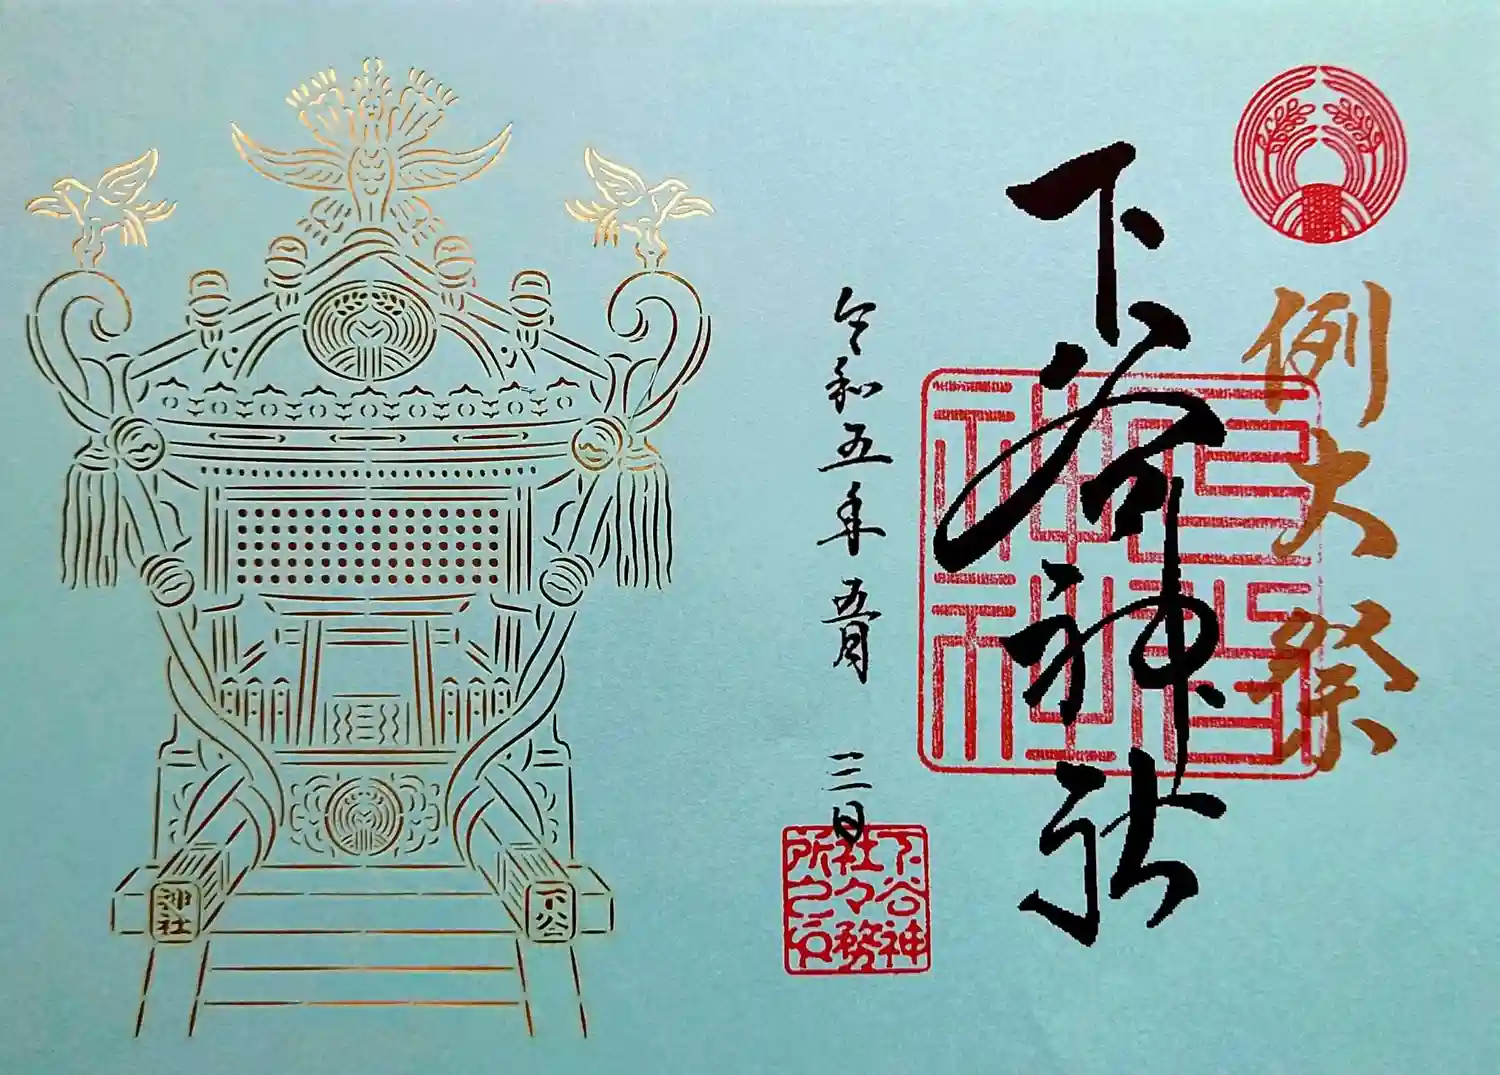 例大祭
下谷神社
令和五年五月三日
下谷神
社々務
所之印
下谷
神社